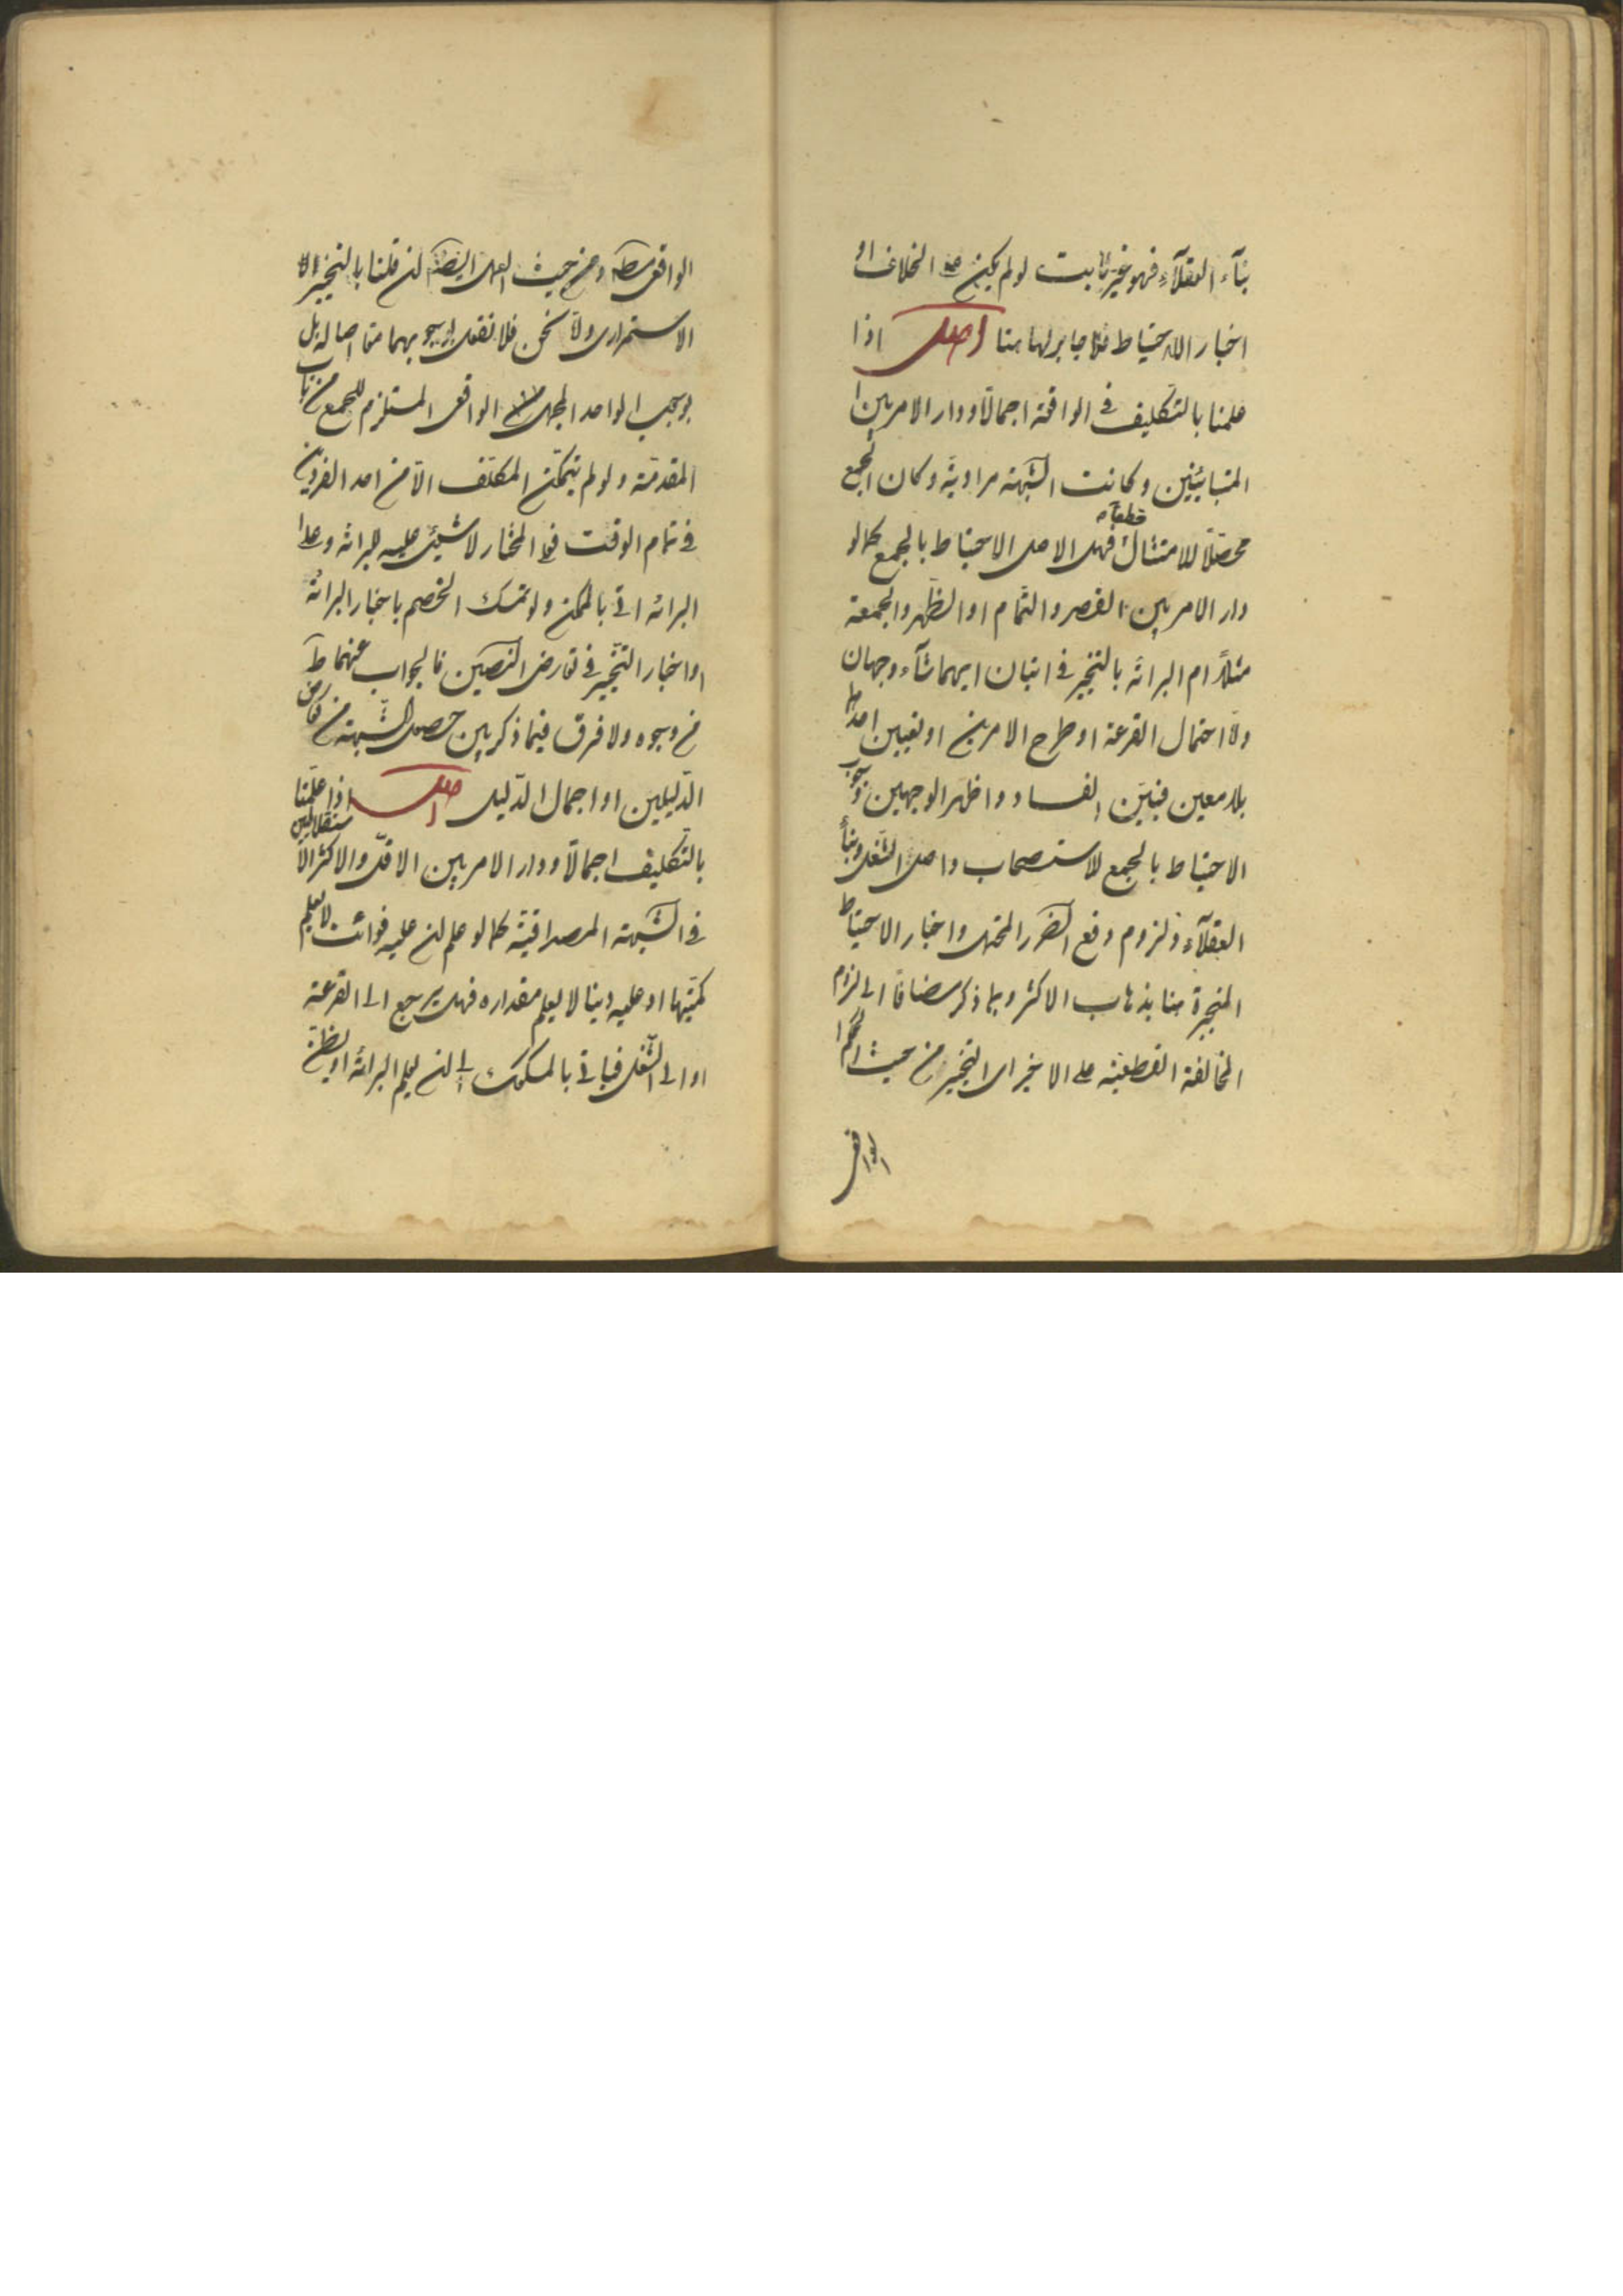 بنآء العقلآء فهو غير ثابت لو لم يكن على الخلاف او
اخبار الاحتياط فلا جابر لها هنا اصل اذا
علمنا بالتكليف فى الواقعة اجمالاً ودار الامر بين
المتباينين وكانت الشبهة مرادية وكان الجمع
محصلاً للامتثال قطعاً فهل الاصل الاحتياط بالجمع كما لو
دار الامر بين القصر والتمام او الظهر والجمعة
مثلاً ام البرائة بالتخيير فى اتيان ايهما شآء وجهان
واما احتمال القرعة او طرح الامرين او تعيين احدهما
بلا معين فبين الفساد واظهر الوجهين وجوب
الاحتياط بالجمع للاستصحاب واصل الشغل وبنآء
العقلآء ولزوم دفع الضرر المحتمل واخبار الاحتياط
المنجبرة هنا بذهاب الاكثر وبما ذكر مضافا الى لزوم
المخالفة القطعية على الاخير اى التخيير من حيث الحكم
الواقعى
الواقعى ومن حيث العمل ايضا ان قلنا بالتخيير
الاستمرارى ونحن فلا نقول بوجوبهما معا اصالة بل
بوجوب الواحد المجهول الواقعى المستلزم للجمع من باب
المقدمة ولو لم يتمكن المكلف الا من احد الفردين
فى تمام الوقت فعلى المختار لا شيئ عليه للبرائة وعلى
البرائة اتى بالممكن ولو تمسك الخصم باخبار البرائة
او اخبار التخيير فى تعارض النصين فالجواب عنهما ظ
من وجوه ولا فرق فيما ذكر بين حصول الشبهة من تعارض
الدليلين او اجمال الدليل اصل اذا علمنا
بالتكليف اجمالاً ودار الامر بين الاقل والاكثر الاستقلاليين
فى الشبهة المصداقية كما لو علم ان عليه فوائت لا يعلم
كميتها او عليه دينا لا يعلم مقداره فهل يرجع الى القرعة
او الى الشغل فياتى بالمشكوك الى ان يعلم البرائة او يظن